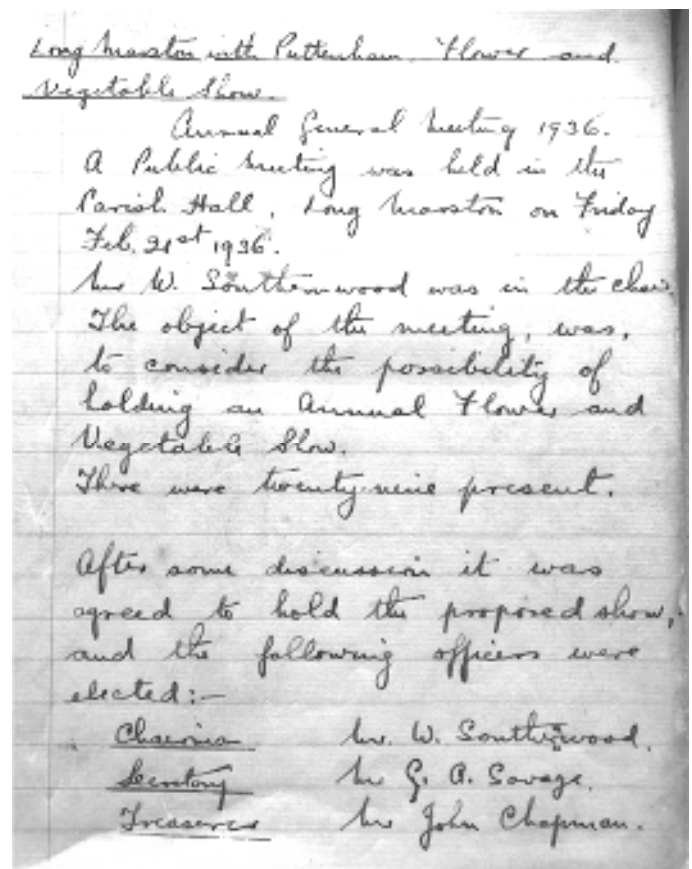 Long Marston with Puttenham. Flower and
Vegetable Show.
Annual General Meeting 1936.
A Public Meeting was held in the
Parish Hall, Long Marston on Friday
Feb. 21st 1936.
Mr W. Southernwood was in the chair.
The object of the meeting, was,
to consider the possibility of
holding an Annual Flower and
Vegetable Show.
There were twenty-nine present.
After some discussion it was
agreed to hold the proposed show,
and the following officers were
elected:-
Chairman Mr. W. Southernwood.
Secretary Mr G. A. Savage.
Treasurer Mr John Chapman.